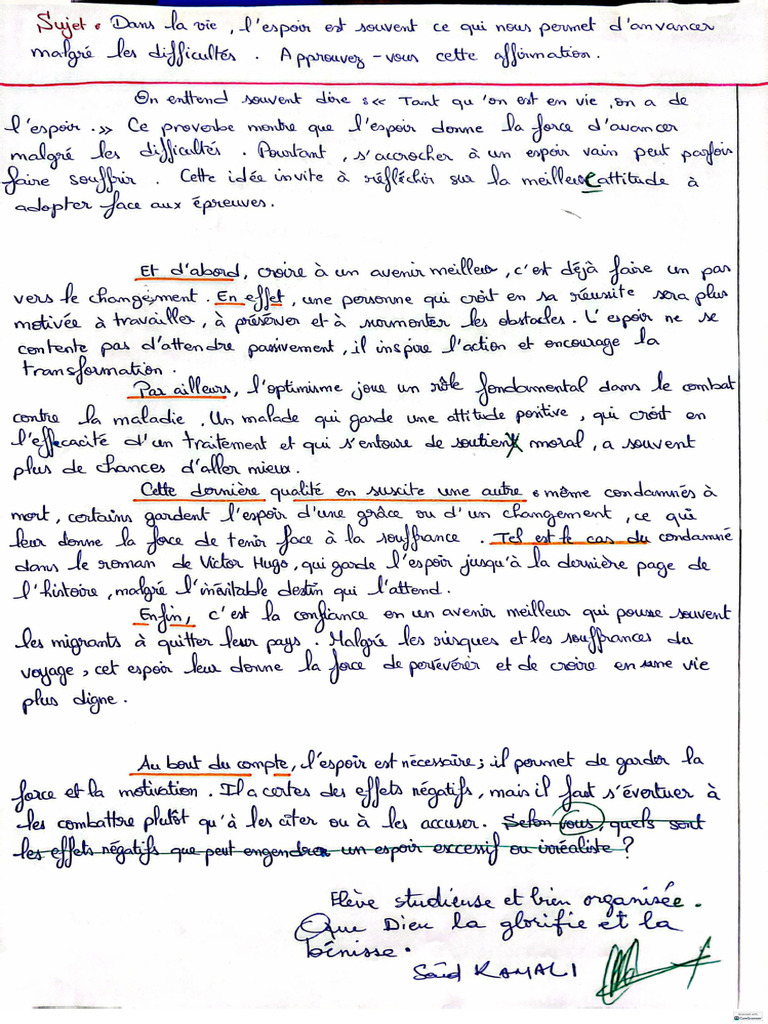 Sujet : Dans la vie, l'espoir est souvent ce qui nous permet d'anvancer
malgré les difficultés. Approuvez-vous cette affirmation.
On enttend souvent dire : << Tant qu'on est en vie, on a de
l'espoir. >> Ce proverbe montre que l'espoir donne la force d'avancer
malgré les difficultés. Pourtant, s'accrocher à un espoir vain peut parfois
faire souffrir. Cette idée invite à réfléchir sur la meilleure attitude à
adopter face aux épreuves.
Et d'abord, croire à un avenir meilleur, c'est déjà faire un pas
vers le changement. En effet, une personne qui croit en sa réussite sera plus
motivée à travailler, à préserver et à surmonter les obstacles. L'espoir ne se
contente pas d'attendre passivement, il inspire l'action et encourage la
transformation.
Par ailleurs, l'optimisme joue un rôle fondamental dans le combat
contre la maladie. Un malade qui garde une attitude positive, qui croit en
l'efficacité d'un traitement et qui s'entoure de soutien moral, a souvent
plus de chances d'aller mieux.
Cette dernière qualité en suscite une autre : même condamnés à
mort, certains gardent l'espoir d'une grâce ou d'un changement, ce qui
leur donne la force de tenir face à la souffrance. Tel est le cas du condamné
dans le roman de Victor Hugo, qui garde l'espoir jusqu'à la dernière page de
l'histoire, malgré l'inévitable destin qui l'attend.
Enfin, c'est la confiance en un avenir meilleur qui pousse souvent
les migrants à quitter leur pays. Malgré les risques et les souffrances du
voyage, cet espoir leur donne la force de persévérer et de croire en une vie
plus digne.
Au bout du compte, l'espoir est nécessaire ; il permet de garder la
force et la motivation. Il a certes des effets négatifs, mais il faut s'évertuer à
les combattre plutôt qu'à les citer ou à les accuser. Selon vous, quels sont
les effets négatifs que peut engendrer un espoir excessif ou irréaliste ?
Elève studieuse et bien organisée.
Que Dieu la glorifie et la
bénisse.
Saïd KAMALI
CamScanner